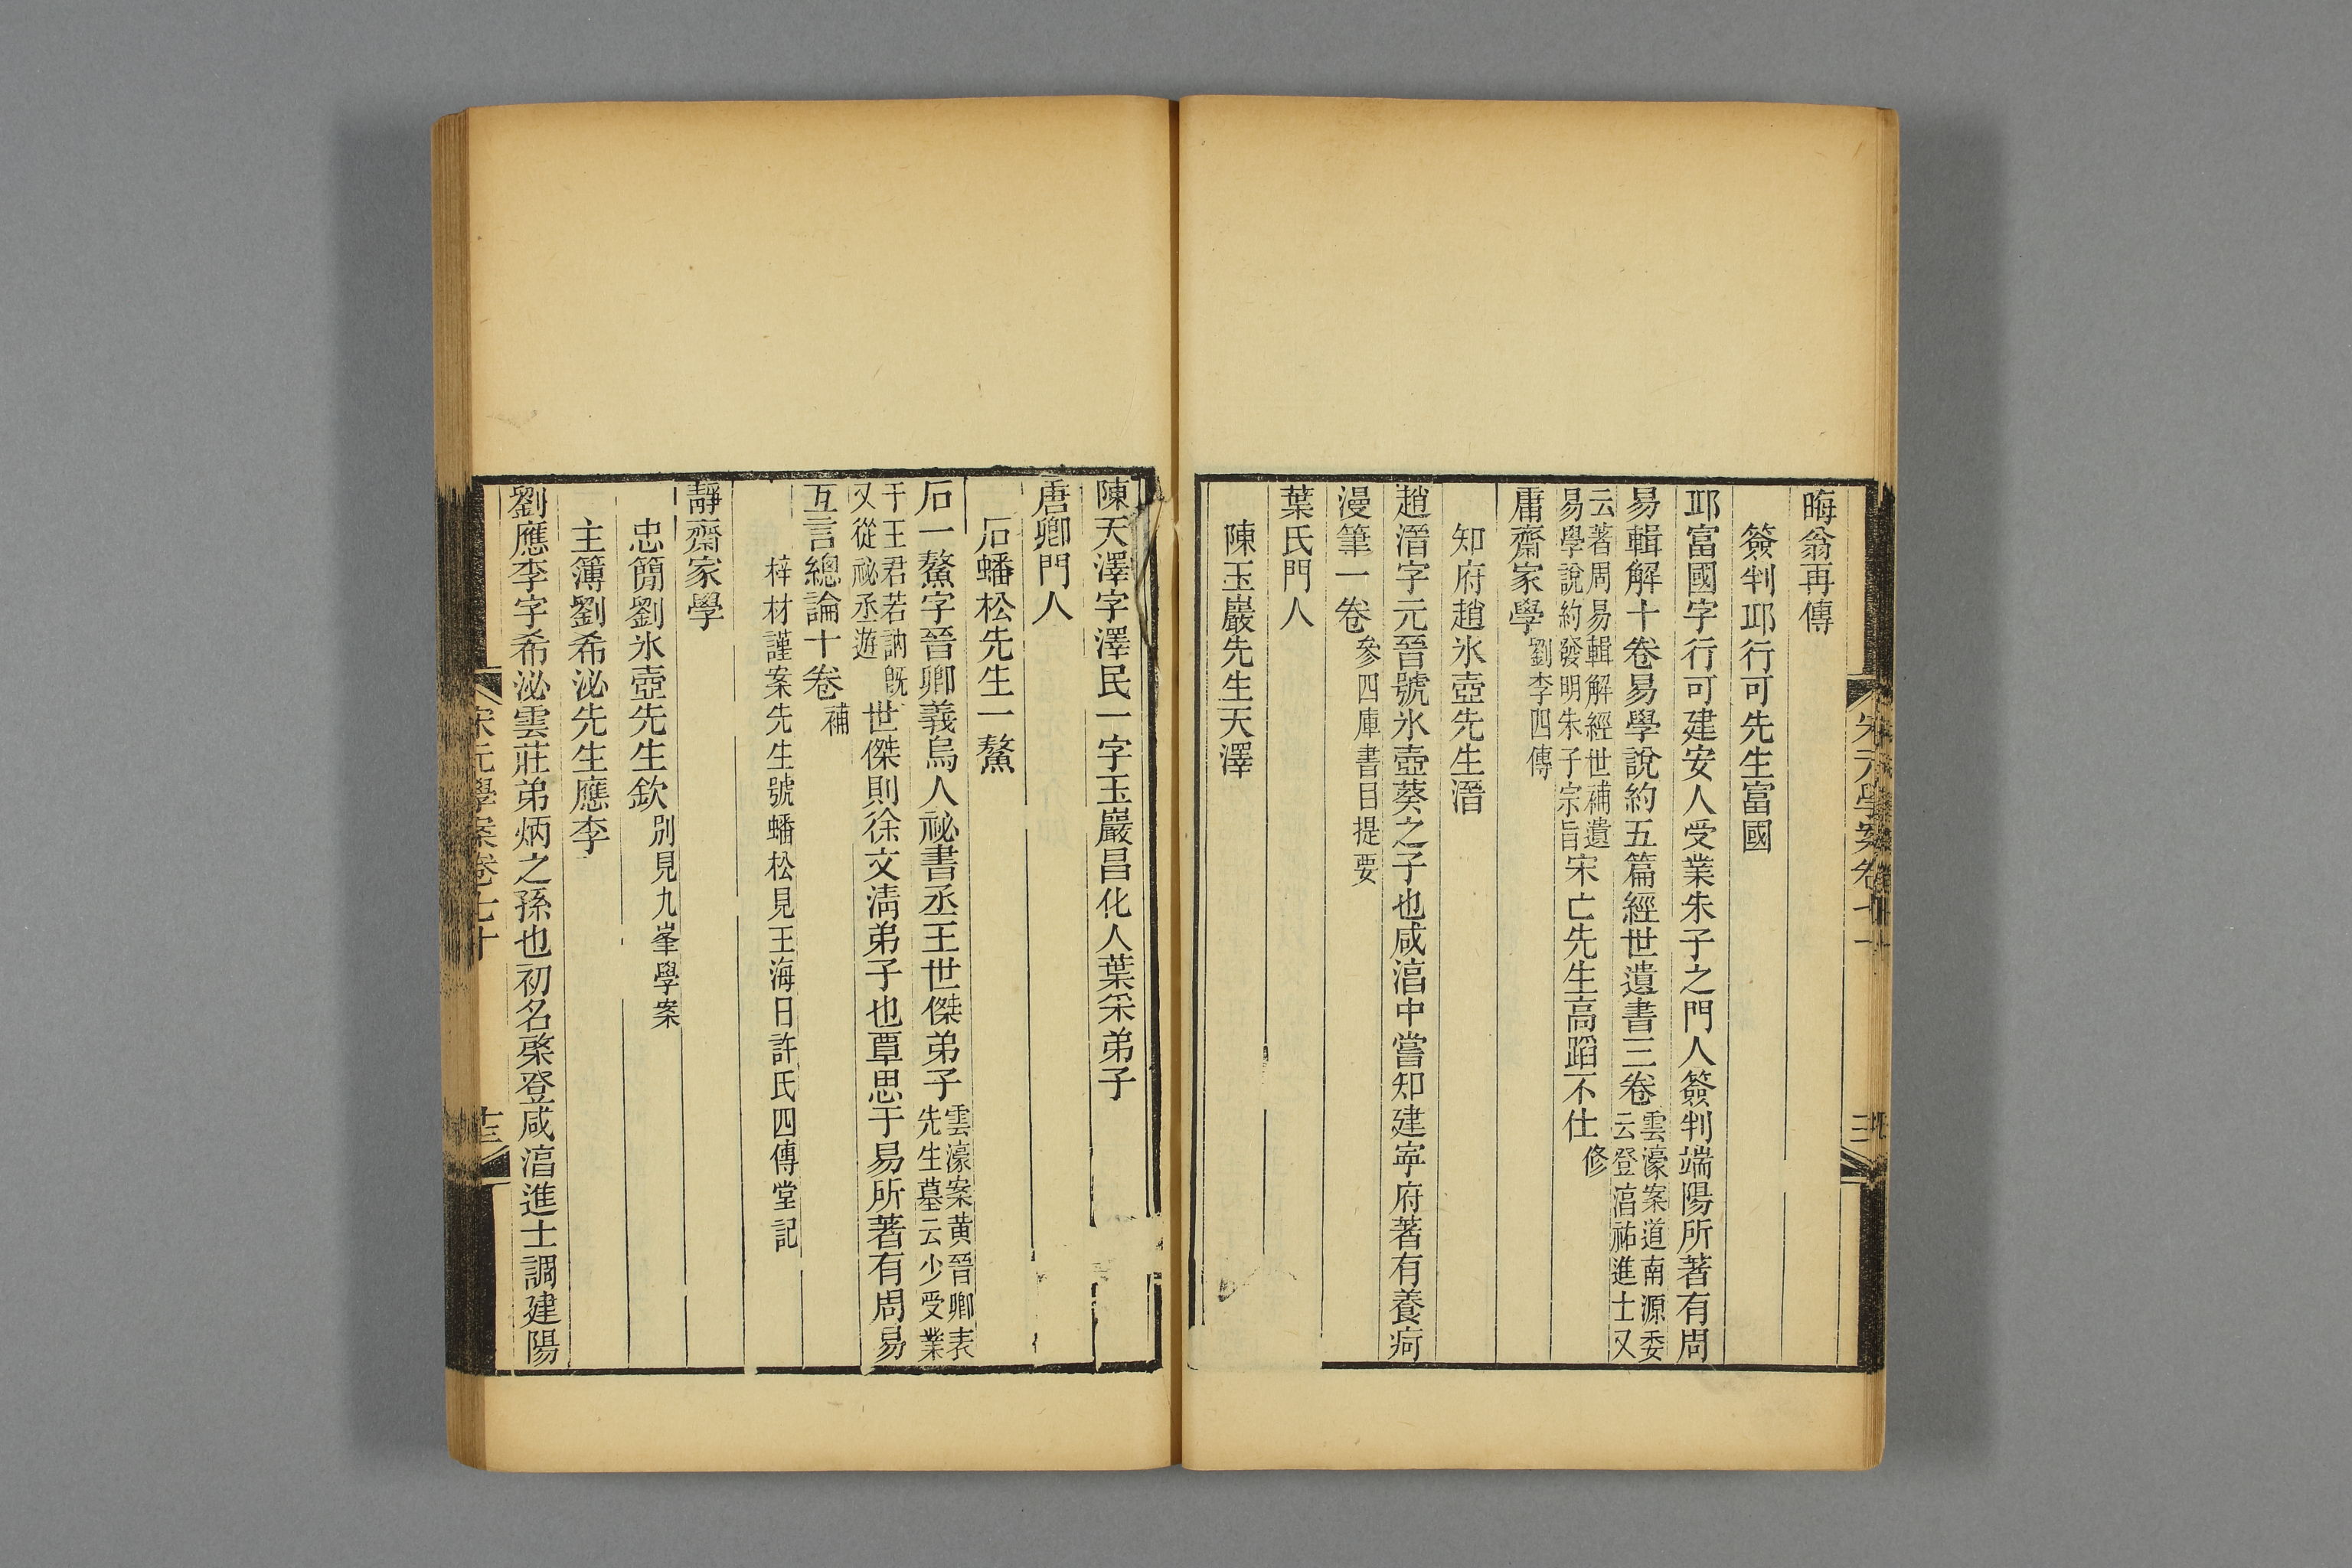 晦翁再傳
簽判邛行可先生富國
邛富國字行可建安人受業朱子之門人簽判端陽所著有周
易輯解十卷易學說約五篇經世遺書三卷雲濠案道南源委云登湻祐進士又
云著周易輯解經世補遺易學說約發明朱子宗旨宋亡先生高蹈不仕修
庸齋家學劉李四傳
知府趙氷壺先生溍
趙溍字元晉號氷壺葵之子也咸湻中嘗知建寜府著有養疴
漫筆一卷參四庫書目提要
葉氏門人
陳玉巖先生天澤
陳天澤字澤民一字玉巖昌化人葉采弟子
唐卿門人
石蟠松先生一鰲
石一鰲字晉卿義烏人祕書丞王世傑弟子雲濠案黃晉卿表先生墓云少受業
于王君若訥旣又從祕丞遊世傑則徐文淸弟子也覃思于易所著有周易
互言總論十卷補
梓材謹案先生號蟠松見王海日許氏四傳堂記
靜齋家學
忠簡劉氷壺先生欽別見九峯學案
主簿劉希泌先生應李
劉應李字希泌雲莊弟炳之孫也初名棨登咸湻進士調建陽
宋元學案卷七十